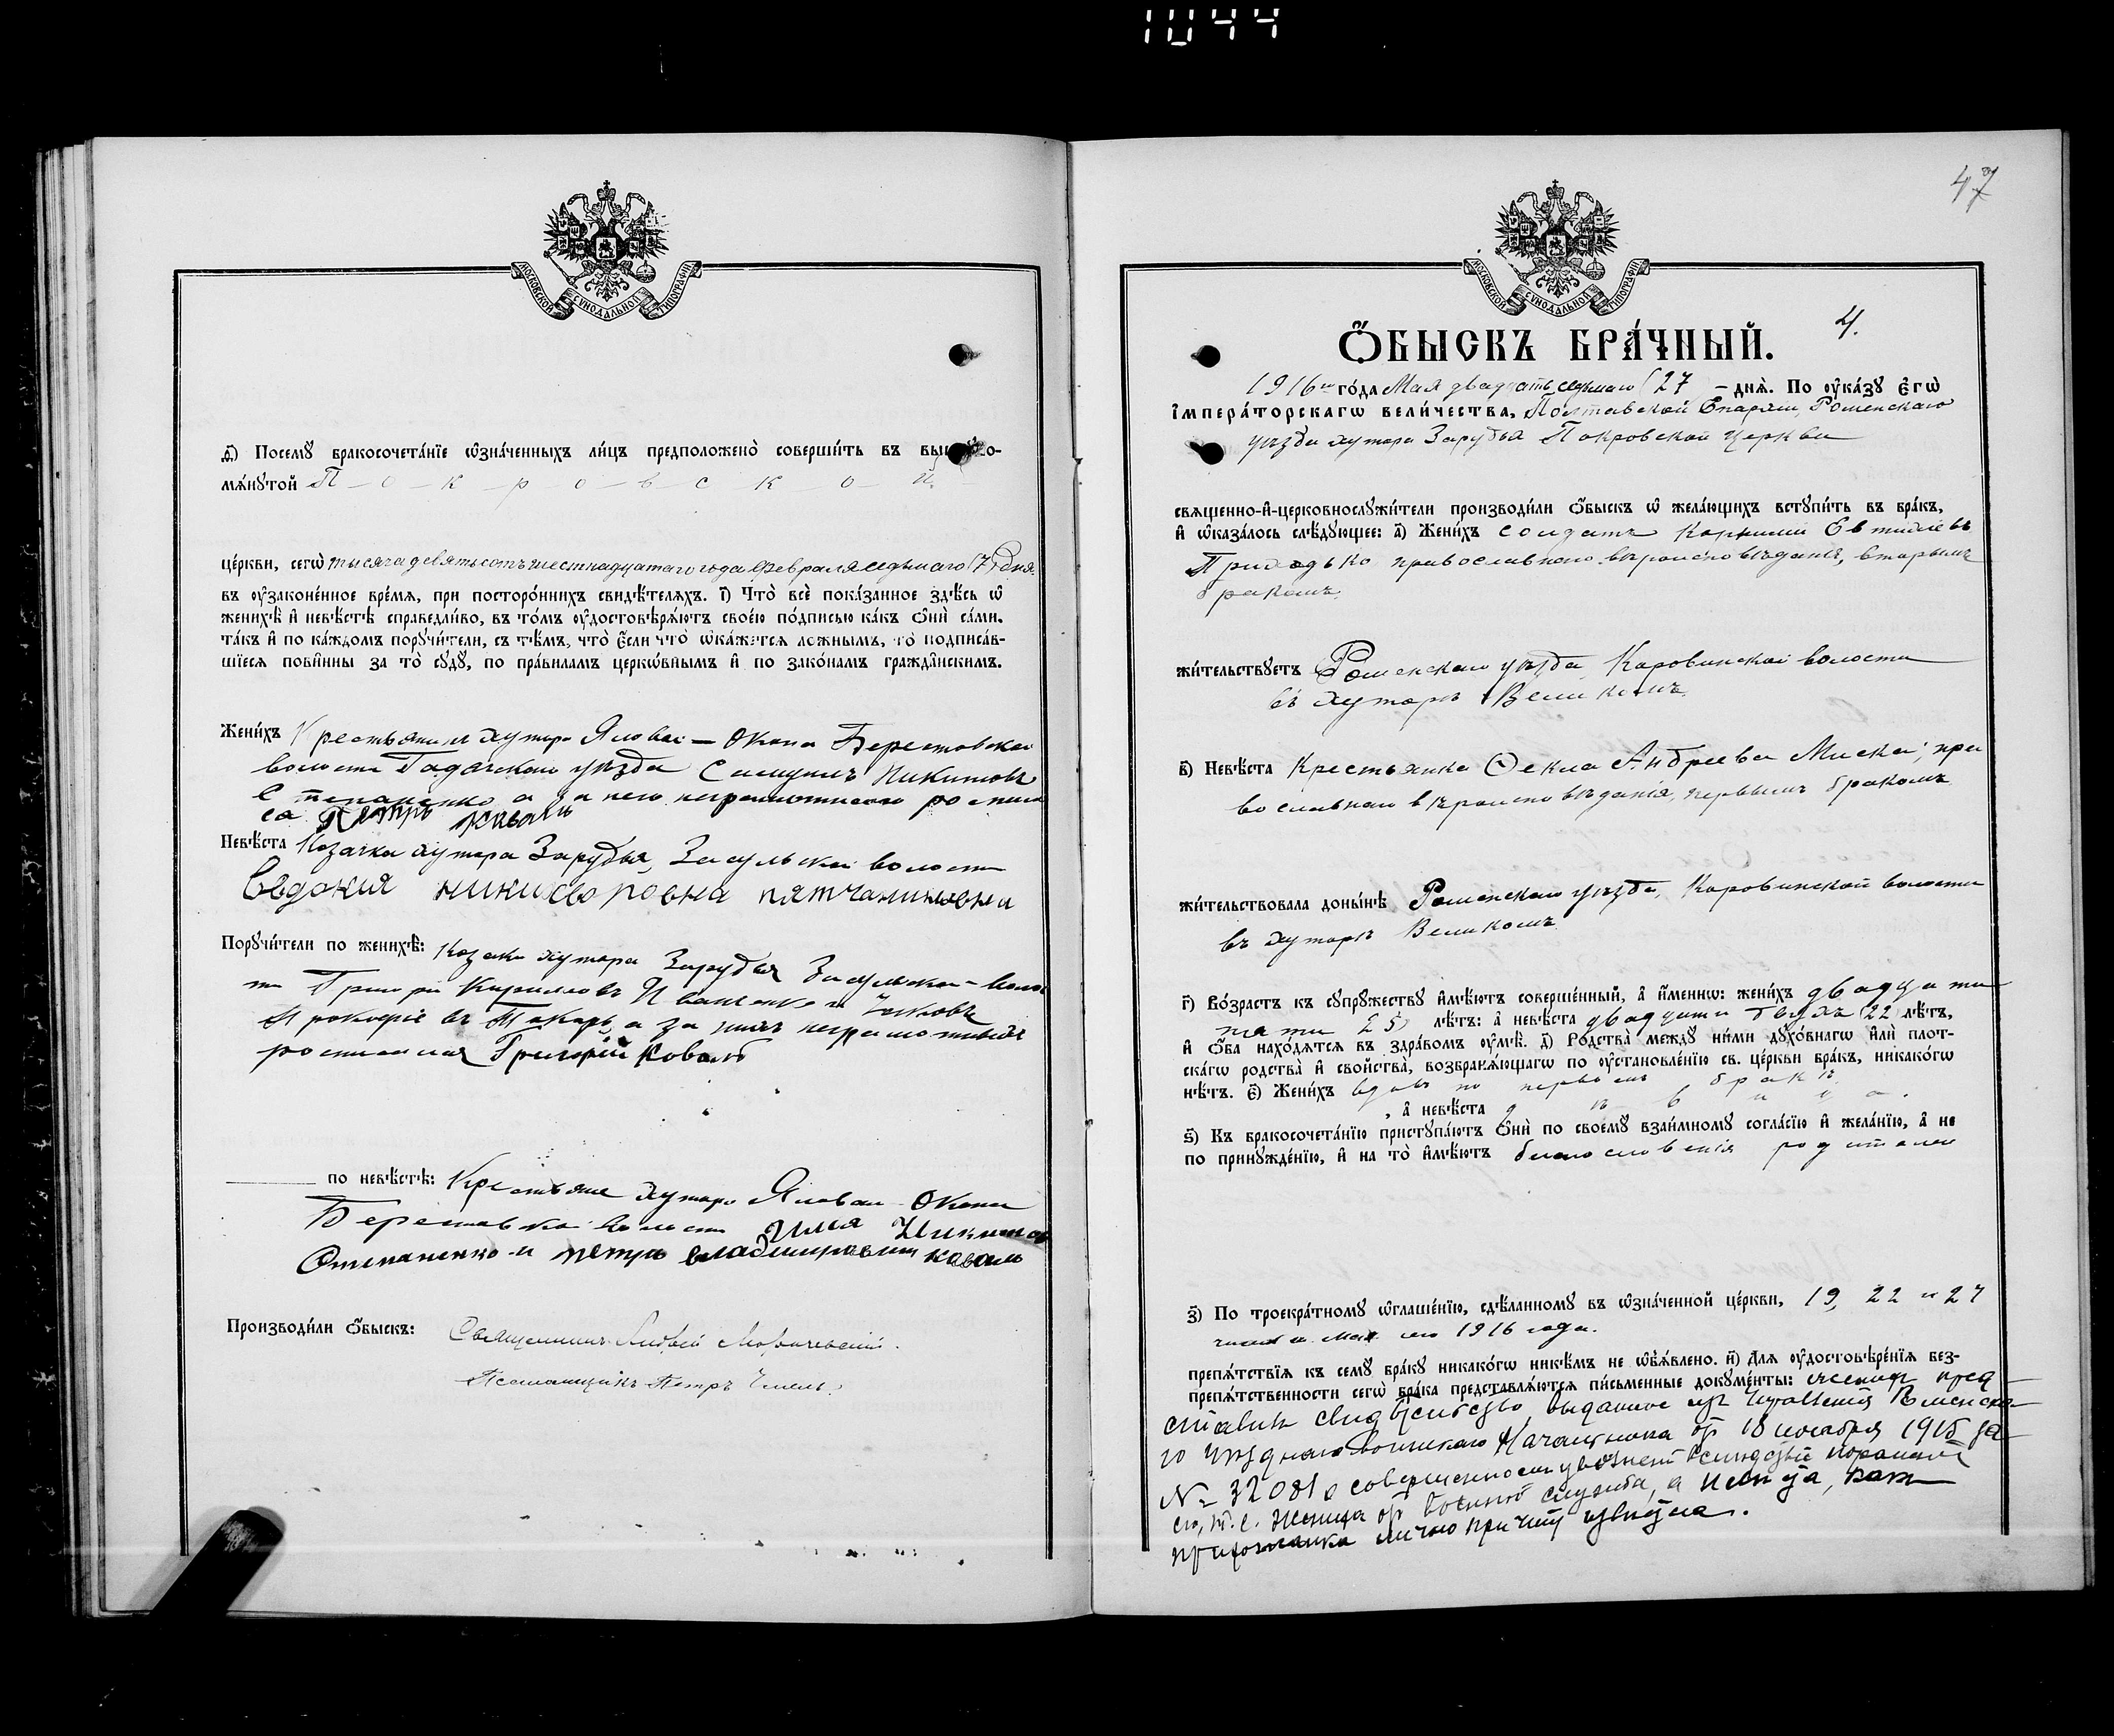 1044
МОСКОВСКОЙ СУНОДАЛЬНОЙ ТИПОГРАФІИ
ѳ҃) Посемꙋ бракосочета́нїе ѡ҆зна́ченныхъ ли́цъ предположено̀ соверши́ть въ вы
мѧ́нꙋтой П-о-к-р-о-в-с-к-о-й
це́ркви, сегѡ̀ тысяча девятьсотъ шестнадцатаго года Февраля седьмаго (7) дня
въ ᲂу҆зако́нѣнное вре́мѧ, при посторо́ннихъ свидѣ́телѧхъ. і҃) Что̀ всѐ пока́занное здѣ́сь ѡ҆
женихѣ̀ и҆ невѣ́стѣ справедли́во, въ то́мъ ᲂу҆достовѣрѧ́ютъ свое́ю по́дписью ка́къ ѻ҆нѝ са́ми,
та́къ и҆ по ка́ждомъ порꙋчи́тели, съ тѣ́мъ, что̀ є҆́сли что̀ ѡ҆ка́жетсѧ ло́жнымъ, то̀ подписа́в-
шїесѧ пови́нны за то̀ сꙋдꙋ̀, по пра́виламъ церкѡ́внымъ и҆ по зако́намъ гражда́нскимъ.
Жени́хъ Крестьянинъ хутора Яловаго-Окопа Берестовской
волости Гадячскаго уѣзда Самуилъ Никитовъ
Степаненко а за него неграмотнаго росписал
ся Петръ Коваль
Невѣ́ста Козачка хутора Зарудья, Засульской волости
Евдокия никифоровна
Порꙋчи́тели по женихѣ̀: Козаки хутора Зарудья Засульской-воло
ти Григорій Кирилловъ Иваненко и
Прокофіевъ а за нихъ неграмотныхъ
росписался Григорій Коваль
по невѣ́стѣ: Крестьяне хутора Ялова Окопа
Берестовской волости Илия Никитов
Степаненко и петръ владимировичъ коваль
Производи́ли ѻ҆́быскъ: Священникъ Андрей
Псаломщикъ Петръ
47
МОСКОВСКОЙ СУНОДАЛЬНОЙ ТИПОГРАФІИ
4.
Ѻ҆́БЫСКЪ БРА́ЧНЫЙ.
1916 го го́да Мая двадцать седьмаго (27 - днѧ̀. По ᲂу҆ка́зꙋ є҆гѡ̀
і҆мпера́торскагѡ вели́чества, Полтавской Епархіи, Роменскаго
уѣзда хутора Зарудья Покровской церкви
свѧще́нно-и҆-церковнослꙋжи́тели производи́ли ѻ҆́быскъ ѡ҆ жела́ющихъ встꙋпи́ть въ бра́къ,
и҆ ѡ҆каза́лось слѣ́дꙋющее: а҃) Жени́хъ солдатъ Корнилій Евтихіевъ
Приходько православнаго вѣроисповѣданія, вторымъ
бракомъ.
жи́тельствꙋетъ Роменскаго уѣзда, Коровинской волости
въ хуторѣ Великомъ.
в҃) Невѣ́ста Крестьянка Ѳекла Андреева Миска; пра
вославнаго вѣроисповѣданія, первымъ бракомъ.
жи́тельствовала доны́нѣ Роменскаго уѣзда, Коровинской волости
въ хуторѣ Великомъ.
г҃) Во́зрастъ къ сꙋпрꙋ́жествꙋ и҆мѣ́ютъ соверше́нный, а҆ и҆́менно: жени́хъ двадцати
пяти 25) лѣ́тъ: а҆ невѣ́ста двадцати двухъ (22) лѣ́тъ,
и҆ ѻ҆́ба нахо́дѧтсѧ въ здра́вомъ ᲂу҆мѣ̀. д҃) Родства̀ междꙋ̀ ни́ми дꙋхо́внагѡ и҆лѝ плот-
ска́гѡ родства̀ и҆ сво́йства, возбранѧ́ющагѡ по ᲂу҆становле́нїю св. це́ркви бра́къ, никако́гѡ
нѣ́тъ. є҃) Жени́хъ вдовъ по первомъ бракѣ
, а҆ невѣ́ста дѣвица.
ѕ҃) Къ бракосочета́нїю пристꙋпа́ютъ ѻ҆нѝ по своемꙋ̀ взаи́мномꙋ согла́сїю и҆ жела́нїю, а҆ не
по принꙋжде́нїю, и҆ на то̀ и҆мѣ́ютъ благословенія родителей
з҃) По троекра́тномꙋ ѡ҆глаше́нїю, сдѣ́ланномꙋ въ ѡ҆зна́ченной це́ркви, 19, 22 и 27
числа мая сего 1916 года.
препѧ́тствїѧ къ семꙋ̀ бра́кꙋ никако́гѡ никѣ́мъ не ѡ҆б̾ѧ́влено. и҃) Длѧ ᲂу҆достовѣре́нїѧ без-
препѧ́тственности сегѡ̀ бра́ка представлѧ́ютсѧ пи́сьменные докꙋме́нты: женихъ пред
ставилъ свидѣтельство, выданное изъ Управленія Роменска
го Уѣзднаго Воинскаго Начальника отъ 18 ноября 1915 за
№ 32081 о совершенномъ увольненіи
его, т. е. жениха отъ военной службы, а невѣста, какъ
прихожанка лично причту извѣстна.